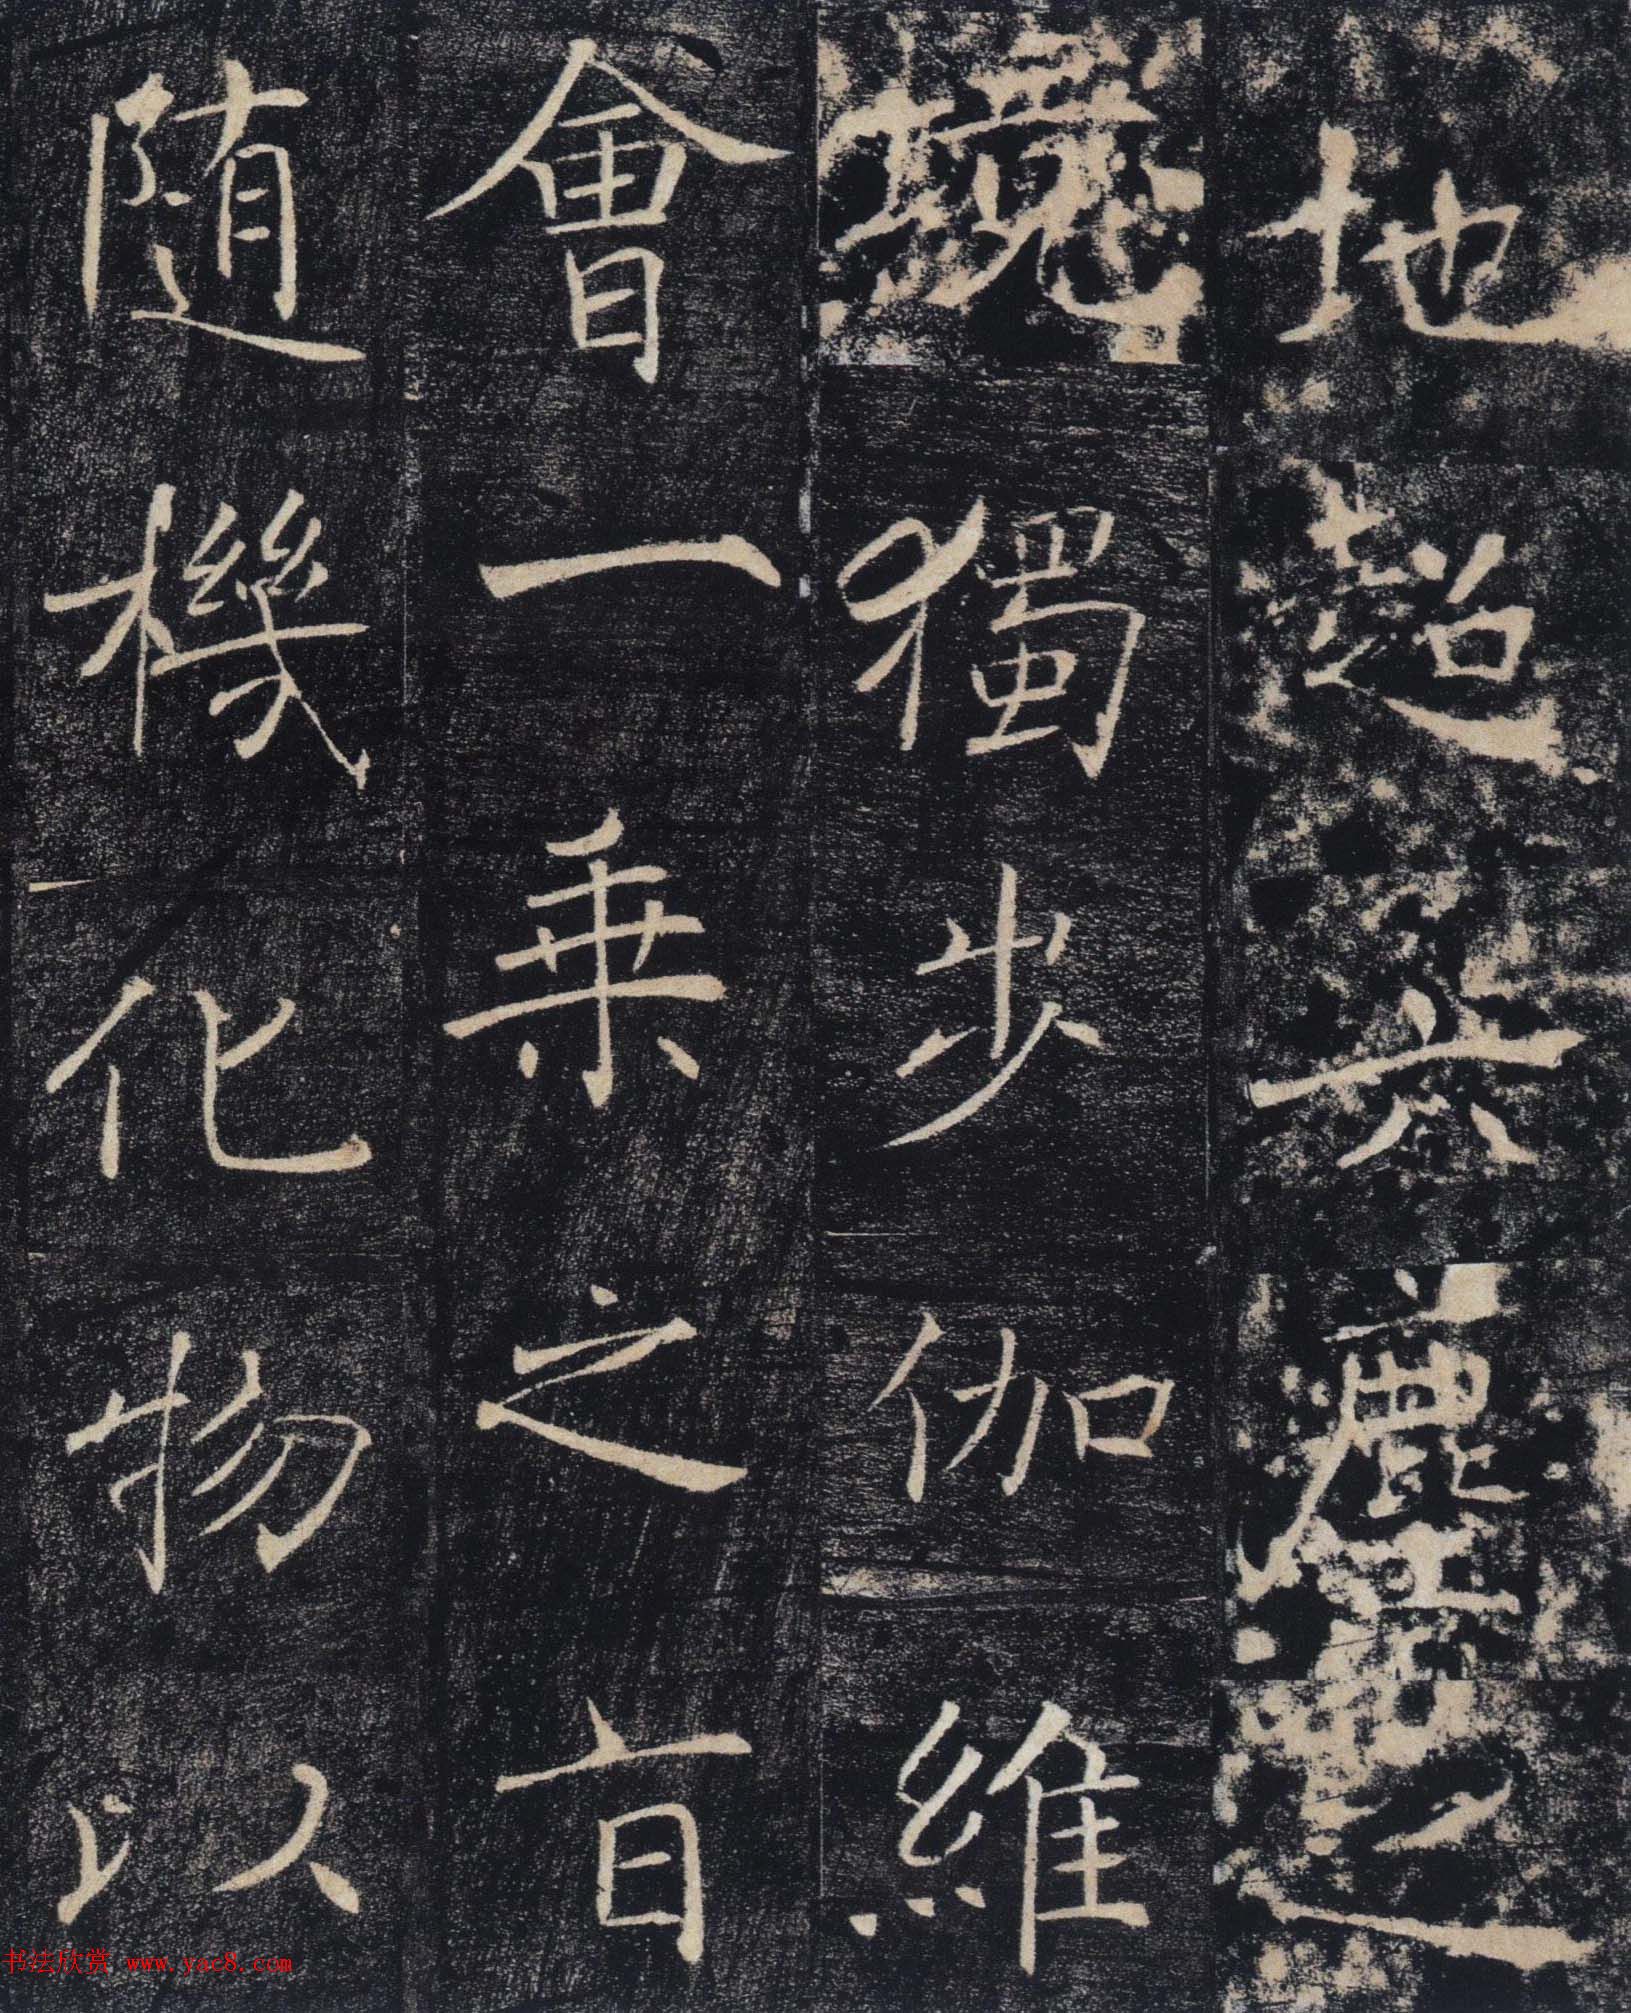 地超六塵之
境獨步伽維
會一乘之旨
随機化物以
书法欣赏 www.yac8.com